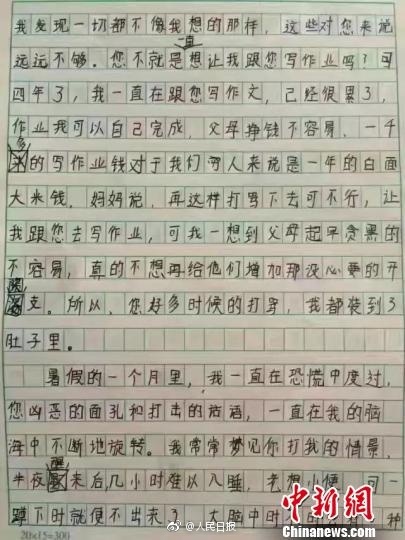 我发现一切都不像我想的那样，这些对您来说
一直
远远不够。您不就是想让我跟您写作业吗？可
四年了，我一直在跟您写作文，已经很累了，
作业我可以自己完成，父母挣钱不容易，一千
多的写作业钱对于我们穷人来说是一年的白面
大米钱，妈妈说，再这样打骂下去可不行，让
我跟您去写作业，可我一想到父母起早贪黑的
不容易，真的不想再给他们增加那没必要的开
支。所以，您好多时候的打骂，我都装到了
肚子里。
暑假的一个月里，我一直在恐慌中度过，
您凶恶的面孔和打击的话语，一直在我的脑
海中不断地旋转。我常常梦见你打我的情景，
半夜醒来后几小时难以入睡，老想小便，可一
蹲下时就便不出来了，大脑中时 种
20×15=300
@人民日报
中新网
Chinanews.com